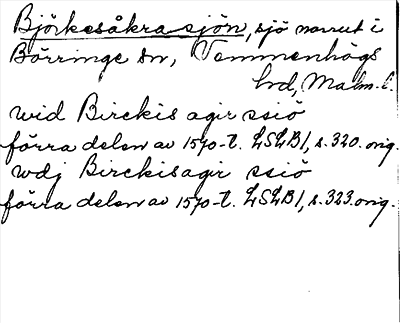 Björkesåkrasjön, sjö norrut i
Börringe sn, Vemmenhögs
hd, Malm. l.
wid Birckis agir ssiö
förra delen av 1570-t. LSLB1, s. 320. orig.
wdj Birckisagir ssiö
förra delen av 1570-t. LSLB1, s. 323. orig.